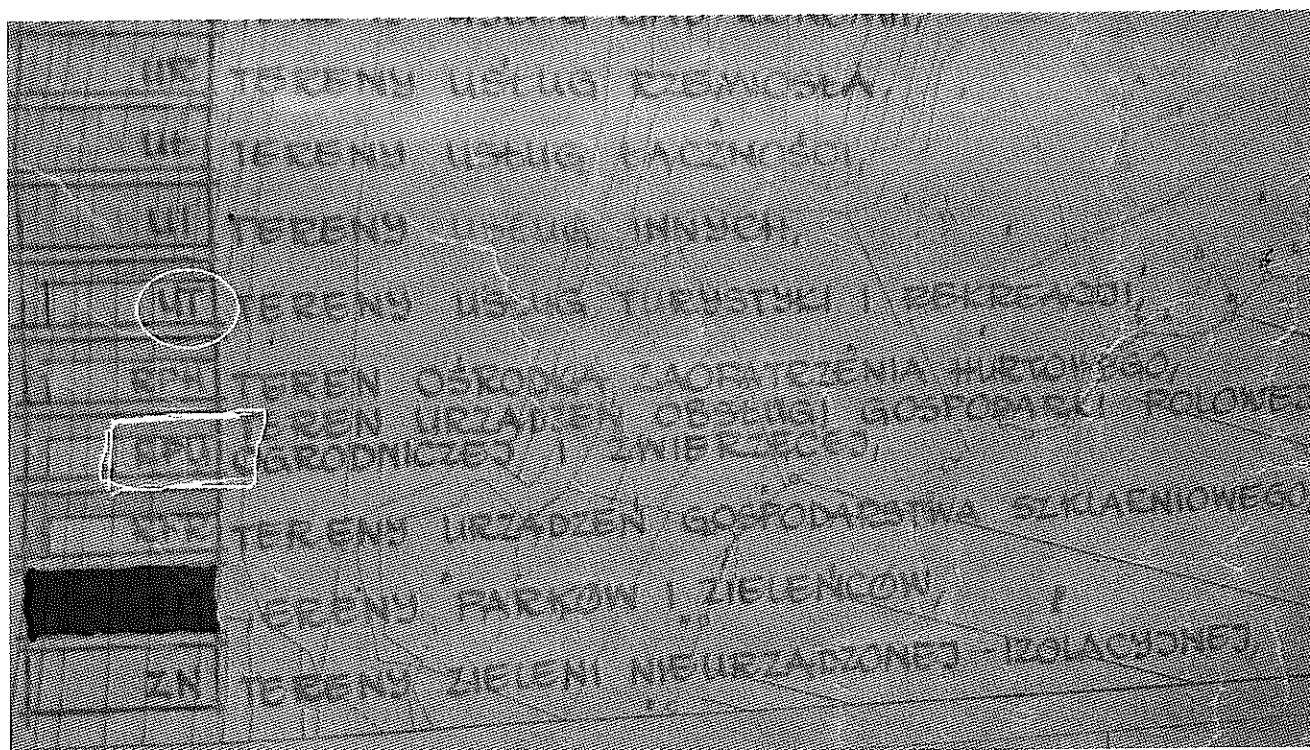 TERENY USŁUG RZEMIOSŁA,
TERENY USŁUG ŁĄCZNOŚCI,
UI TERENY USŁUG INNYCH,
UT TERENY USŁUG TURYSTYKI I REKREACJI,
TEREN OŚRODKA ZAOPATRZENIA HURTOWEGO,
TEREN URZĄDZEŃ OBSŁUGI GOSPODARKI POLOWEJ
OGRODNICZEJ I ZWIERZĘCEJ,
TERENY URZĄDZEŃ GOSPODARSTWA SZKLARNIOWEGO
TERENY PARKÓW I ZIELEŃCÓW,
ZN TERENY ZIELENI NIEURZĄDZONEJ - IZOLACYJNEJ,